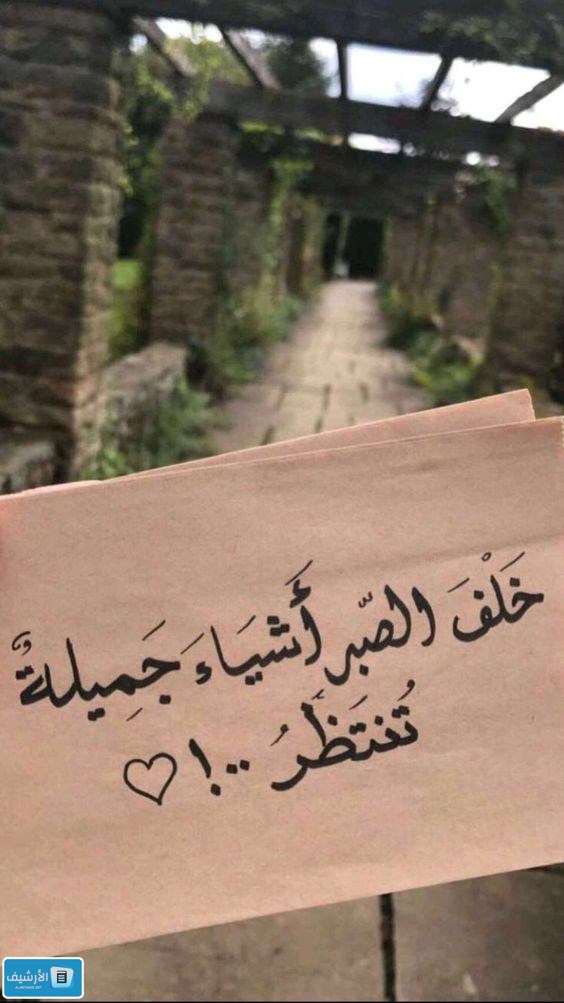 خَلْفَ الصّبر أَشيَاءَ جَمِيلةٌ
تُنتَظَرُ ..! ♡
الأرشيف